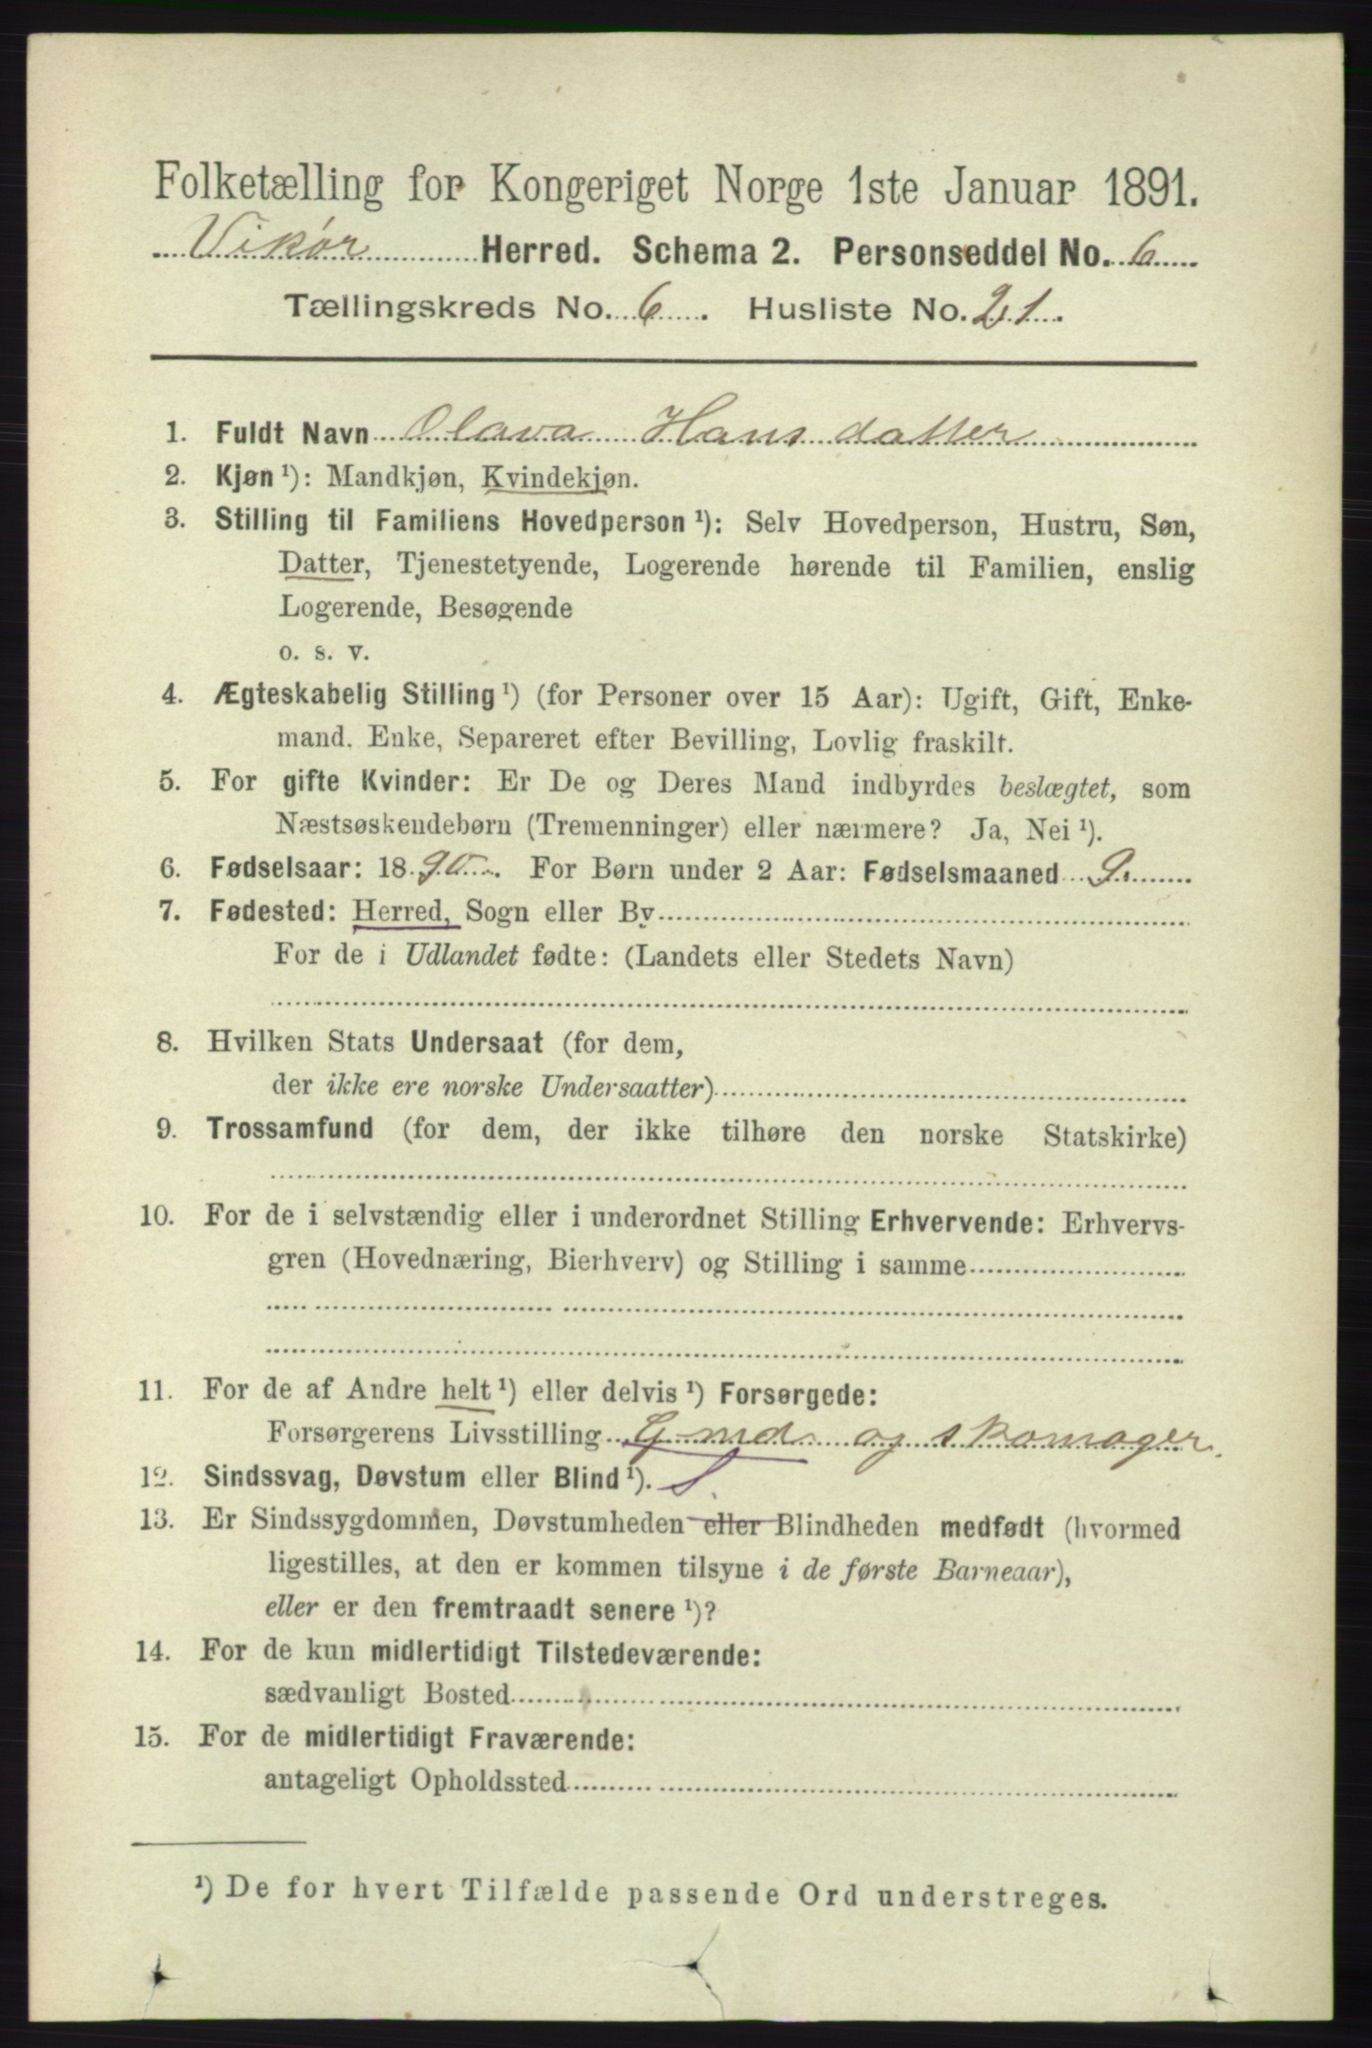 Folketælling for Kongeriget Norge 1ste Januar 1891.
Vikør Herred. Schema 2. Personseddel No. 6
Tællingskreds No. 6. Husliste No. 21.
1. Fuldt Navn Olava Hansdatter
2. Kjøn ¹): Mandkjøn, Kvindekjøn.
3. Stilling til Familiens Hovedperson ¹): Selv Hovedperson, Hustru, Søn,
Datter, Tjenestetyende, Logerende hørende til Familien, enslig
Logerende, Besøgende
o. s. v.
4. Ægteskabelig Stilling ¹) (for Personer over 15 Aar): Ugift, Gift, Enke-
mand, Enke, Separeret efter Bevilling, Lovlig fraskilt.
5. For gifte Kvinder: Er De og Deres Mand indbyrdes beslægtet, som
Næstsøskendebørn (Tremenninger) eller nærmere? Ja, Nei ¹).
6. Fødselsaar: 1890. For Børn under 2 Aar: Fødselsmaaned 9.
7. Fødested: Herred, Sogn eller By
For de i Udlandet fødte: (Landets eller Stedets Navn)
8. Hvilken Stats Undersaat (for dem,
der ikke ere norske Undersaatter)
9. Trossamfund (for dem, der ikke tilhøre den norske Statskirke)
10. For de i selvstændig eller i underordnet Stilling Erhvervende: Erhvervs-
gren (Hovednæring, Bierhverv) og Stilling i samme
11. For de af Andre helt ¹) eller delvis ¹) Forsørgede:
Forsørgerens Livsstilling Gmd og skomager.
12. Sindssvag, Døvstum eller Blind ¹). S.
13. Er Sindssygdommen, Døvstumheden eller Blindheden medfødt (hvormed
ligestilles, at den er kommen tilsyne i de første Barneaar),
eller er den fremtraadt senere ¹)?
14. For de kun midlertidigt Tilstedeværende:
sædvanligt Bosted
15. For de midlertidigt Fraværende:
antageligt Opholdssted
¹) De for hvert Tilfælde passende Ord understreges.